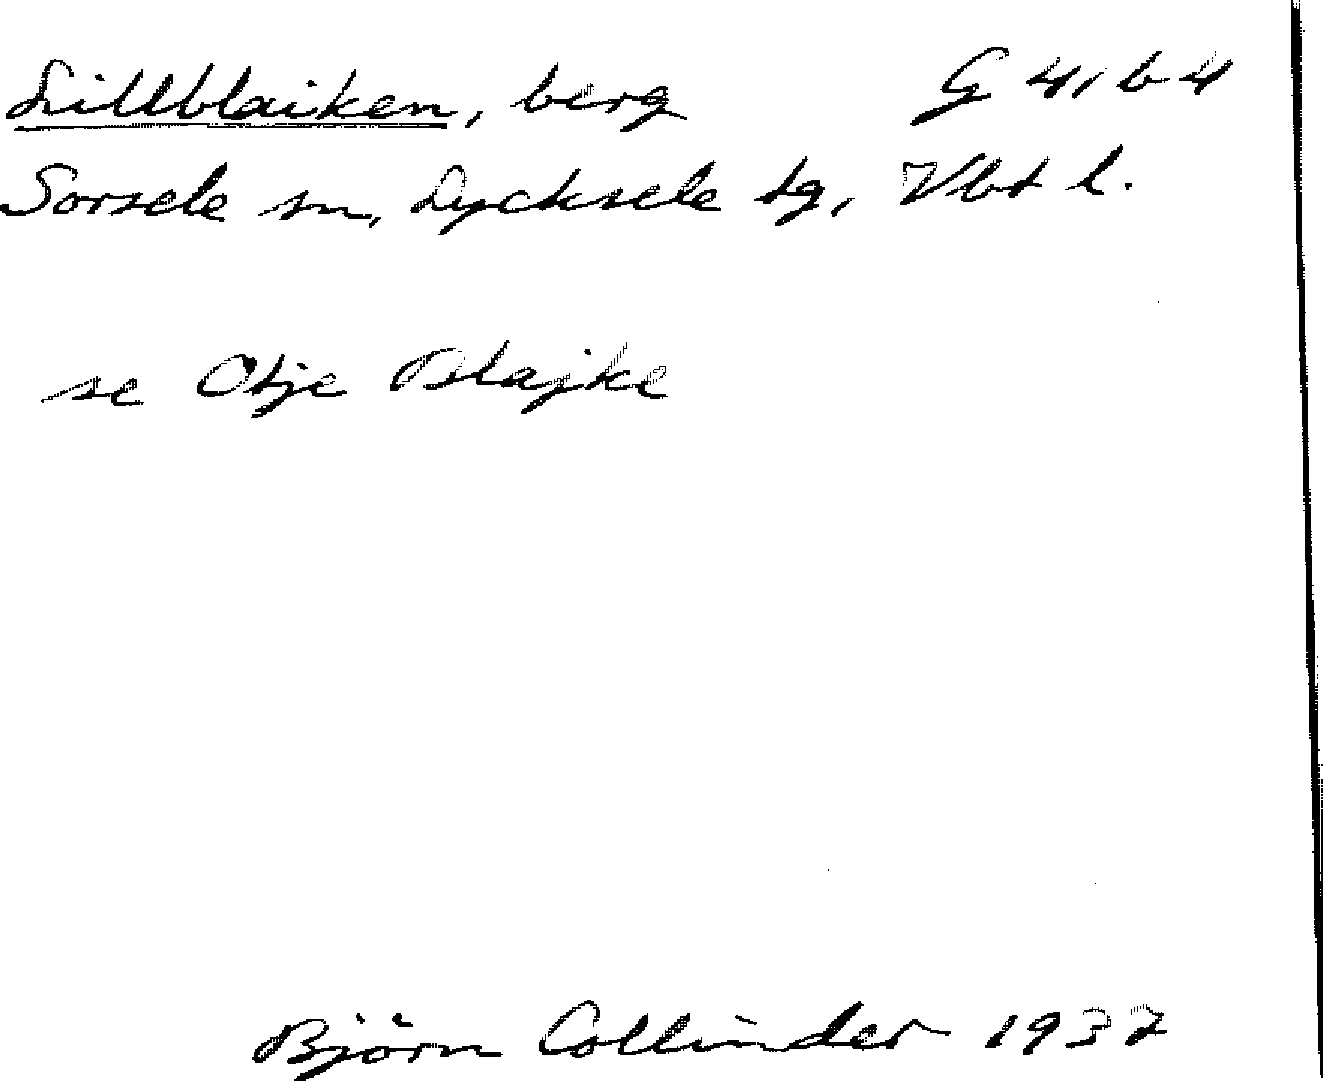 Lillblaiken, berg G 41 b 4
Sorsele sn, Lycksele tg, Vbt l.
se Otje Blajke
Björn Collinder 1937